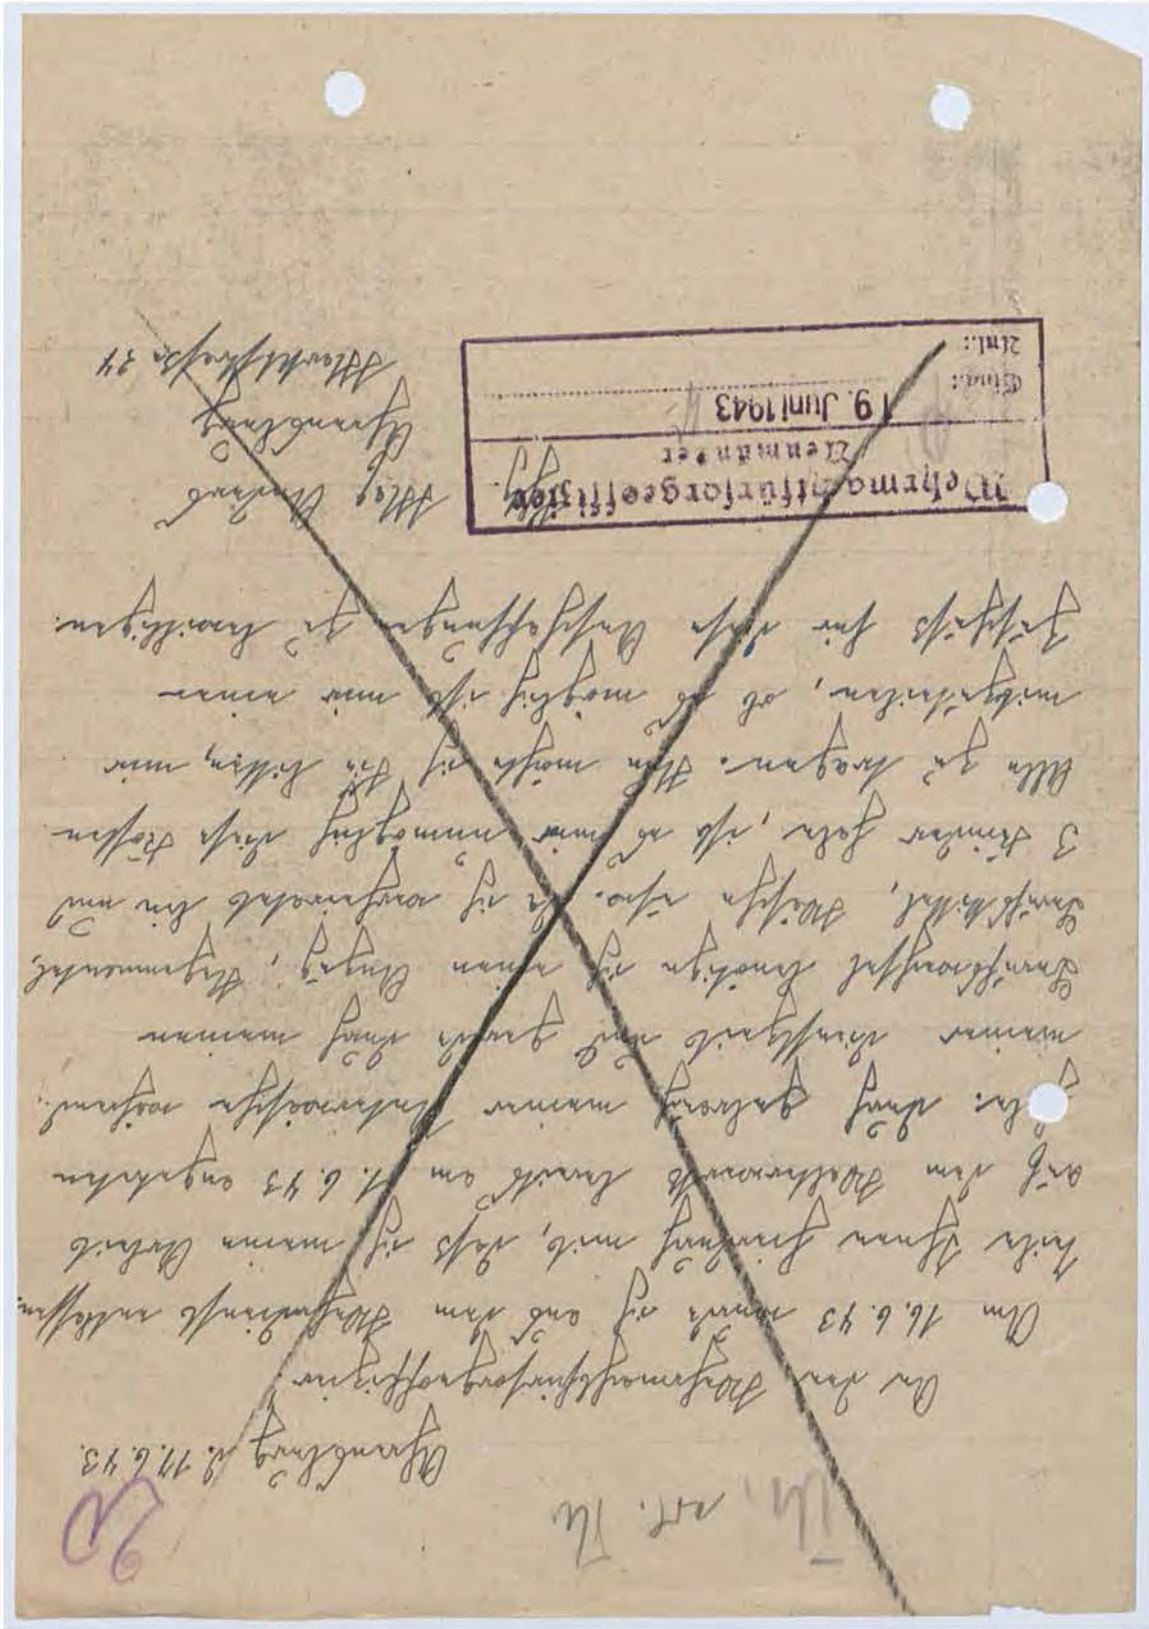 20
Ahrensburg d. 17.6.43.
An den Wehrmachtfürsorgeoffizier
Am 16.6.43 wurde ich aus dem Wehrdienst entlassen.
Teile Ihnen hierdurch mit, daß ich meine Arbeit
auf dem Walterwerk bereits am 17.6.43 angetreten
habe. Durch meiner während
meiner Dienstzeit und gerade durch meinen
Berufswechsel benötige ich einen Anzug, Regenmantel,
Wäsche usw. Da ich verheiratet bin und
3 Kinder habe, ist es mir unmöglich diese Kosten
Alle zu tragen. Nun möchte ich Sie bitten, mir
mitzuteilen, ob es möglich ist mir einen
Zuschuß für diese Anschaffungen zu bewilligen.
Ahrensburg
Wehrmachtfürsorgeoffizier
Neumünster
Eing.: 19. Juni 1943
Anl.: